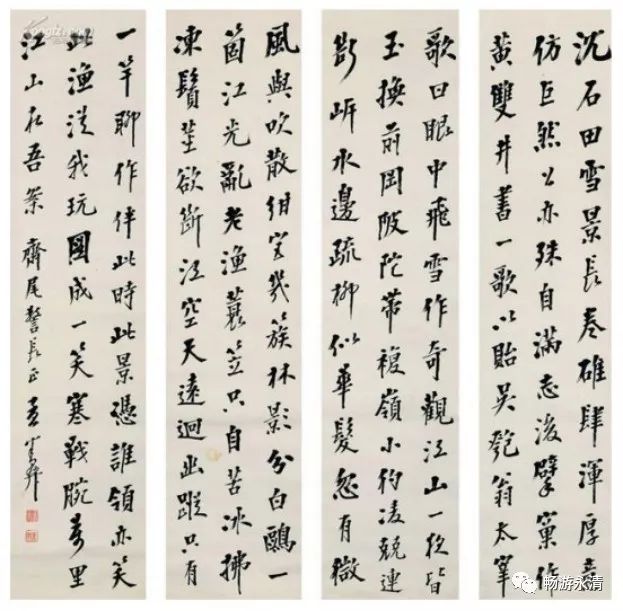 沈石田雪景長卷雄肆渾厚意
仿巨然公亦殊自滿志後擘窠作
黃雙井書一歌以貽吳匏翁太宰
歌曰眼中飛雪作奇觀江山一夜皆
玉換前岡陂陀帶複嶺小彴凌兢連
斷岸水邊疏柳似華髮忽有微
風與吹散紺宮幾簇林影分白鷗一
箇江光亂老漁蓑笠只自苦冰拂
凍鬚莖欲斷江空天遠迥幽蹤只有
一竿聊作伴此時此景憑誰領亦笑
此漁從我玩圖成一笑寒戰腕萬里
江山在吾案 齋尾警長正
畅游永清